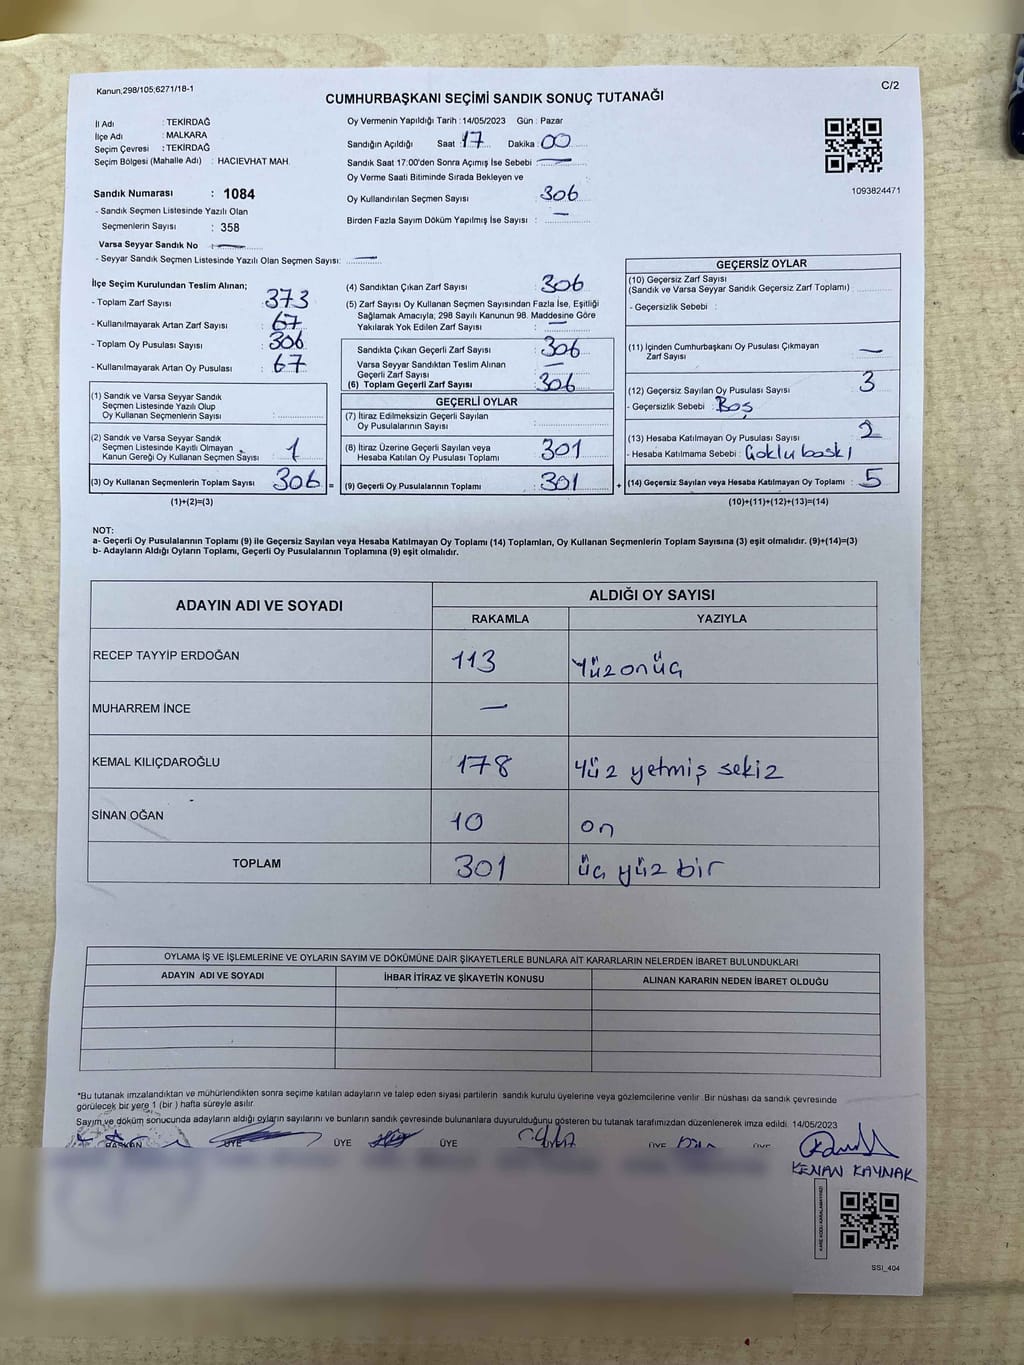 Kanun;298/105;6271/18-1
C/2
CUMHURBAŞKANI SEÇİMİ SANDIK SONUÇ TUTANAĞI
İl Adı : TEKİRDAĞ
İlçe Adı : MALKARA
Seçim Çevresi : TEKİRDAĞ
Seçim Bölgesi (Mahalle Adı) : HACIEVHAT MAH.
Sandık Numarası : 1084
- Sandık Seçmen Listesinde Yazılı Olan
Seçmenlerin Sayısı : 358
Varsa Seyyar Sandık No : —
- Seyyar Sandık Seçmen Listesinde Yazılı Olan Seçmen Sayısı: —
Oy Vermenin Yapıldığı Tarih : 14/05/2023 Gün : Pazar
Sandığın Açıldığı Saat : 17 Dakika : 00
Sandık Saat 17:00'den Sonra Açımış İse Sebebi : —
Oy Verme Saati Bitiminde Sırada Bekleyen ve
Oy Kullandırılan Seçmen Sayısı : 306
Birden Fazla Sayım Döküm Yapılmış İse Sayısı : —
1093824471
İlçe Seçim Kurulundan Teslim Alınan;
- Toplam Zarf Sayısı : 373
- Kullanılmayarak Artan Zarf Sayısı : 67
- Toplam Oy Pusulası Sayısı : 306
- Kullanılmayarak Artan Oy Pusulası : 67
(1) Sandık ve Varsa Seyyar Sandık
Seçmen Listesinde Yazılı Olup
Oy Kullanan Seçmenlerin Sayısı :
(2) Sandık ve Varsa Seyyar Sandık
Seçmen Listesinde Kayıtlı Olmayan
Kanun Gereği Oy Kullanan Seçmen Sayısı : 1
(3) Oy Kullanan Seçmenlerin Toplam Sayısı : 306 =
(1)+(2)=(3)
(4) Sandıktan Çıkan Zarf Sayısı : 306
(5) Zarf Sayısı Oy Kullanan Seçmen Sayısından Fazla İse, Eşitliği
Sağlamak Amacıyla; 298 Sayılı Kanunun 98. Maddesine Göre
Yakılarak Yok Edilen Zarf Sayısı : —
Sandıkta Çıkan Geçerli Zarf Sayısı : 306
Varsa Seyyar Sandıktan Teslim Alınan
Geçerli Zarf Sayısı : —
(6) Toplam Geçerli Zarf Sayısı : 306
GEÇERLİ OYLAR
(7) İtiraz Edilmeksizin Geçerli Sayılan
Oy Pusulasının Sayısı :
(8) İtiraz Üzerine Geçerli Sayılan veya
Hesaba Katılan Oy Pusulası Toplamı : 301
(9) Geçerli Oy Pusulalarının Toplamı : 301 +
GEÇERSİZ OYLAR
(10) Geçersiz Zarf Sayısı
(Sandık ve Varsa Seyyar Sandık Geçersiz Zarf Toplamı) :
- Geçersizlik Sebebi :
(11) İçinden Cumhurbaşkanı Oy Pusulası Çıkmayan
Zarf Sayısı —
(12) Geçersiz Sayılan Oy Pusulası Sayısı : 3
- Geçersizlik Sebebi : Boş
(13) Hesaba Katılmayan Oy Pusulası Sayısı : 2
- Hesaba Katılmama Sebebi : Çoklu baskı
(14) Geçersiz Sayılan veya Hesaba Katılmayan Oy Toplamı : 5
(10)+(11)+(12)+(13)=(14)
NOT:
a- Geçerli Oy Pusulalarının Toplamı (9) ile Geçersiz Sayılan veya Hesaba Katılmayan Oy Toplamı (14) Toplamları, Oy Kullanan Seçmenlerin Toplam Sayısına (3) eşit olmalıdır. (9)+(14)=(3)
b- Adayların Aldığı Oyların Toplamı, Geçerli Oy Pusulalarının Toplamına (9) eşit olmalıdır.
ADAYIN ADI VE SOYADI ALDIĞI OY SAYISI
RAKAMLA YAZIYLA
RECEP TAYYİP ERDOĞAN 113 Yüz on üç
MUHARREM İNCE —
KEMAL KILIÇDAROĞLU 178 Yüz yetmiş sekiz
SİNAN OĞAN 10 on
TOPLAM 301 üç yüz bir
OYLAMA İŞ VE İŞLEMLERİNE VE OYLARIN SAYIM VE DÖKÜMÜNE DAİR ŞİKAYETLERLE BUNLARA AİT KARARLARIN NELERDEN İBARET BULUNDUKLARI
ADAYIN ADI VE SOYADI İHBAR İTİRAZ VE ŞİKAYETİN KONUSU ALINAN KARARIN NEDEN İBARET OLDUĞU
*Bu tutanak imzalandıktan ve mühürlendikten sonra seçime katılan adayların ve talep eden siyasi partilerin sandık kurulu üyelerine veya gözlemcilerine verilir. Bir nüshası da sandık çevresinde
görülecek bir yere 1 (bir ) hafta süreyle asılır.
Sayım ve döküm sonucunda adayların aldığı oyların sayılarını ve bunların sandık çevresinde bulunanlara duyurulduğunu gösteren bu tutanak tarafımızdan düzenlenerek imza edildi. 14/05/2023
BAŞKAN ÜYE ÜYE ÜYE ÜYE ÜYE
KENAN KAYNAK
SSI_404